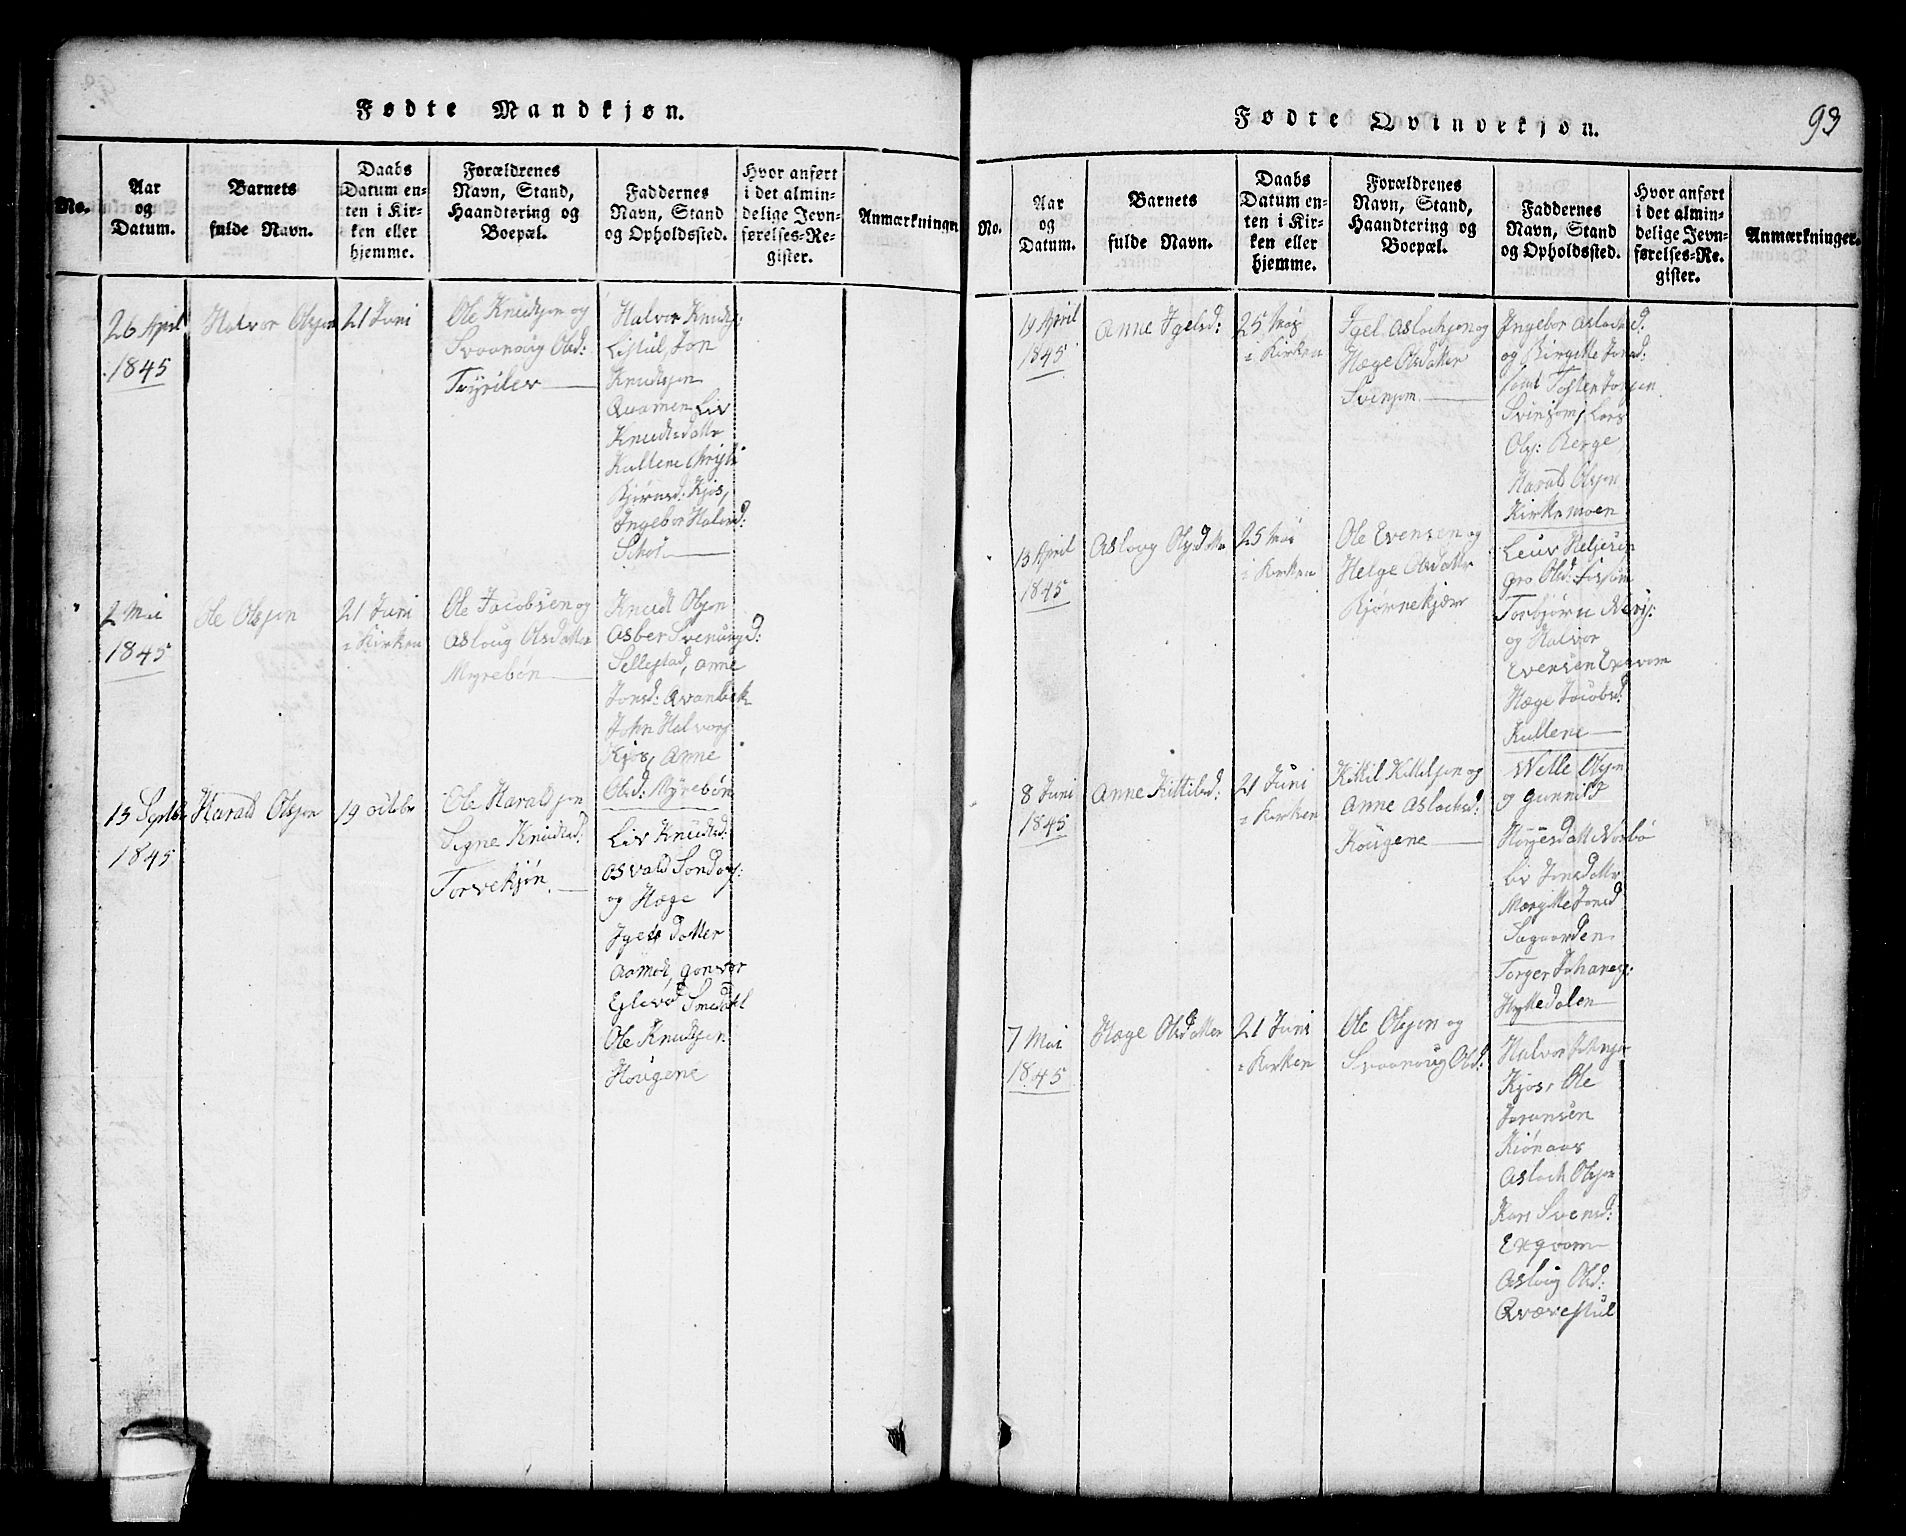 Fødte Mandkjøn.
No.
Aar
og
Datum.
Barnets
fulde Navn.
Daabs
Datum en-
ten i Kir-
ken eller
hjemme.
Forældrenes
Navn, Stand,
Haandtering og
Boepæl.
Faddernes
Navn, Stand
og Opholdssted.
Hvor anført
i det almin-
delige Jevn-
førelses-Re-
gister.
Anmærkninger
26 April
1845
Halvor Olsen
21 Juni
Ole Knudsen og
Olsd:
Halvor Knuds:
Listul, Jon
Knudsen
Qvamen Liv
Knudsdatter
Kullene
Kjøs,
Ingebor Halvsd:
2 Mai
1845
Ole Olsen
21 Juni
i Kirken
Ole Jacobsen og
Asloug Olsdatter
Myrebøn
Knudt Olsen
Asber Svenungd:
Sellestad, Anne
Jonsd: Qvanbek
John Halvors
Kjøs, Anne
Olsd: Myrebøn
15 Septbr
1845
Harald Olsen
19 Octobr
Ole Haraldsen
Signe Knudsd:
Torvekjøn
Liv Knudsd:
Osvald
og Hæge
datter
Aamot, Gonvor
Ole Knudsen
Hougene
Fødte Qvindekjøn.
93
No.
Aar
og
Datum.
Barnets
fulde Navn.
Daabs
Datum en-
ten i Kir-
ken eller
hjemme.
Forældrenes
Navn, Stand,
Haandtering og
Boepæl.
Faddernes
Navn, Stand
og Opholdssted.
Hvor anført
i det almin-
delige Jevn-
førelses-Re-
gister.
Anmærkninger.
19 April
1845
Anne Igelsd:
25 Mai
i Kirken
Igel Aslachsen og
Hæge Olsdatter
Ingebor Aslachsd:
og Birgitte Jonsd:
samt Tosten Jonsen
Lars
Ols: Berge,
Harald Olsen
Kirkemoen
13 April
1845
Asloug Olsdatter
25 Mai
i Kirken
Ole Evensen og
Helge Olsdatter
Bjørnekjær
Gro Olsd:
Torbjørn
og Halvor
Evensen Exqvam
Hæge Jacobsd:
Kullene
8 Juni
1845
Anne Kittilsd:
21 Juni
i Kirken
Kittil Kittilsen og
Anne Aslachsd:
Hougene
Olsen
og Gunnild
Liv Jonsdatter
Margitte Jonsd
Sagaarden
Torger Johanes:
Hyttedalen
7 Mai
1845
Hæge Olsdatter
21 Juni
i Kirken
Ole Olsen og
Olsd:
Halvor
Kjøs, Ole
Aslach Olsen
Kari Svensd:
Exqvam
Aslaug Olsd:
Qværestul